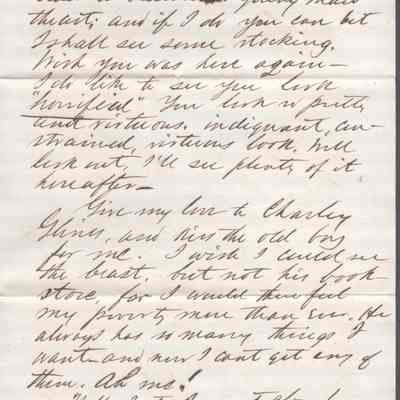 young man's
theart; and if I do you can bet
I shall see some stocking.
Wish you was here again—
I do like to see you look
"horrified" You look so pretty
and virtuous. indignant, con-
strained, virtuous look. Well
look out, I'll see plenty of it
hereafter—
Give my love to Charley
Glines, and kiss the old boy
for me. I wish I could see
the beast, but not his book
store, for I would there feel
my poverty more than ever. He
always has so many things I
want—and now I cant get any of
them. Ah me!